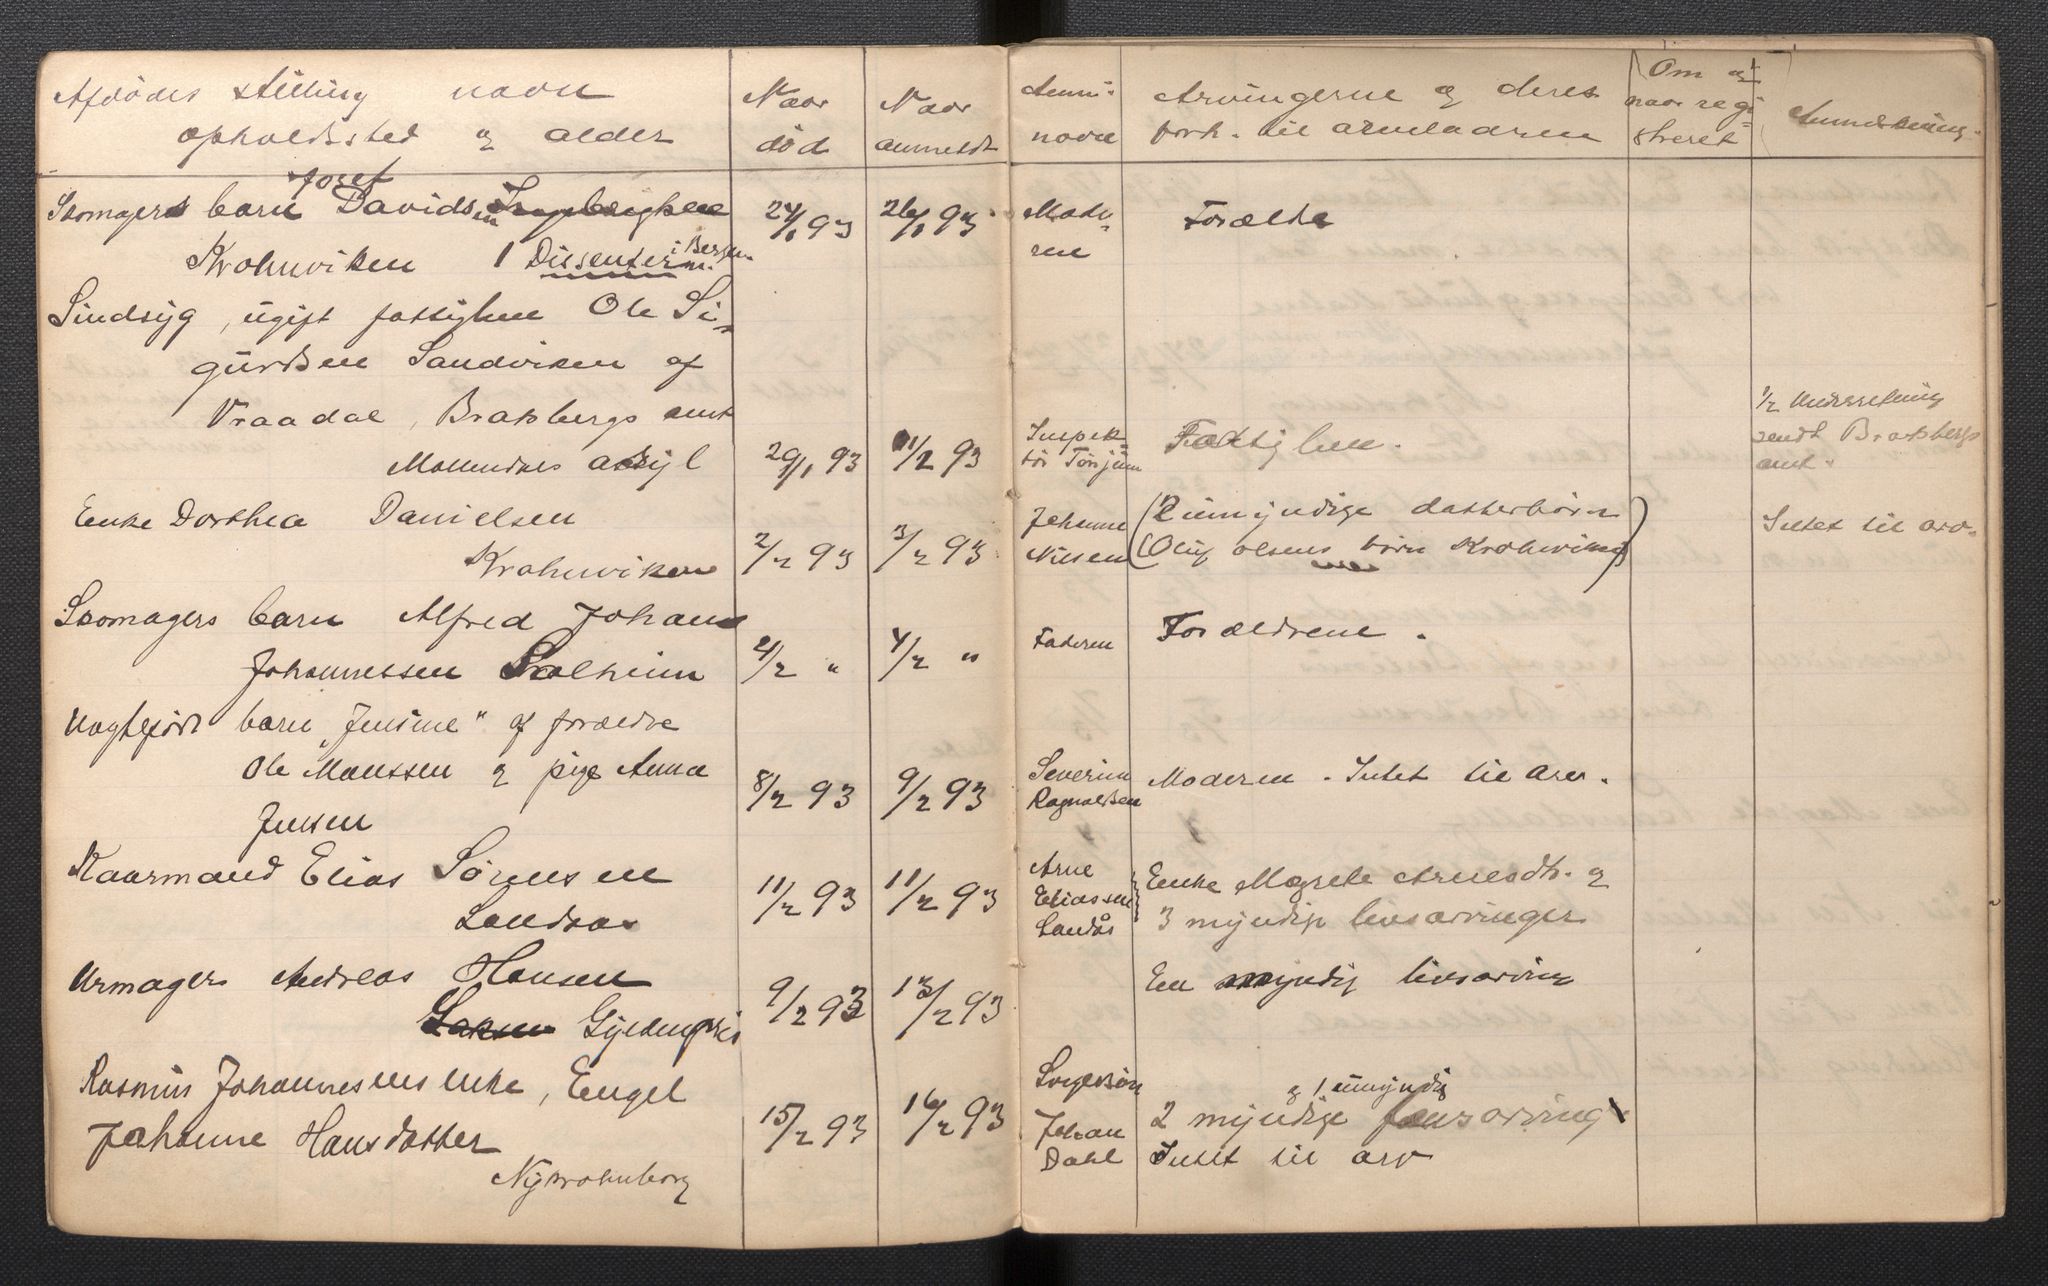 Afdødes stilling navn
opholdssted og alder
Naar
død
Naar
anmeldt
Anmi-
navn
Arvingerne og deres
forh. til arveladeren
Om og
naar regi-
streret
Anmerkning.
Josef
Skomagers barn Davidsen
Krohnviken 1 Dissenter i Bergen
24/1 93
26/1 93
Mode-
ren
Forældre
Sindsyg, ugift fattiglem Ole Si-
gurdsen Sandviken af
Vraadal, Bratsbergs amt
Møllendals asyl
29/1 93
1/2 93
Inspek-
tør Torjum
Fattiglem.
1/2 Underretning
sendt Bratsbergs
amt.
Enke Dorthea Danielsen
Krohnviken
2/2 93
3/2 93
Johanne
Nilsen
(2 umyndige datterbørn
(Oluf Olsens børn Krohnviken)
Intet til arv.
Skomagers barn Alfred Johan
Johannessen Solheim
2/2 "
4/2 "
Faderen
Forældrene.
Uægtefødt barn "Jensine" af forældre
Ole Monssen og pige Anna
Jensen
8/2 93
9/2 93
Severin
Ragnvaldsen
Moderen. Intet til arv.
Kaarmand Elias Sørensen
Landaas
11/2 93
11/2 93
Arne
Eliassen
Landås
Enke Magrete Arnesdtr. og
3 myndige livsarvinger
Urmager Andreas Hansen
Gyldenpris
9/2 93
13/2 93
En myndig livsarving
Rasmus Johannesens enke, Engel
Johanne Hansdatter
Ny Krohnborg
15/2 93
16/2 93
Johan
Dahl
og 1 umyndig
2 myndige livsarving
Intet til arv